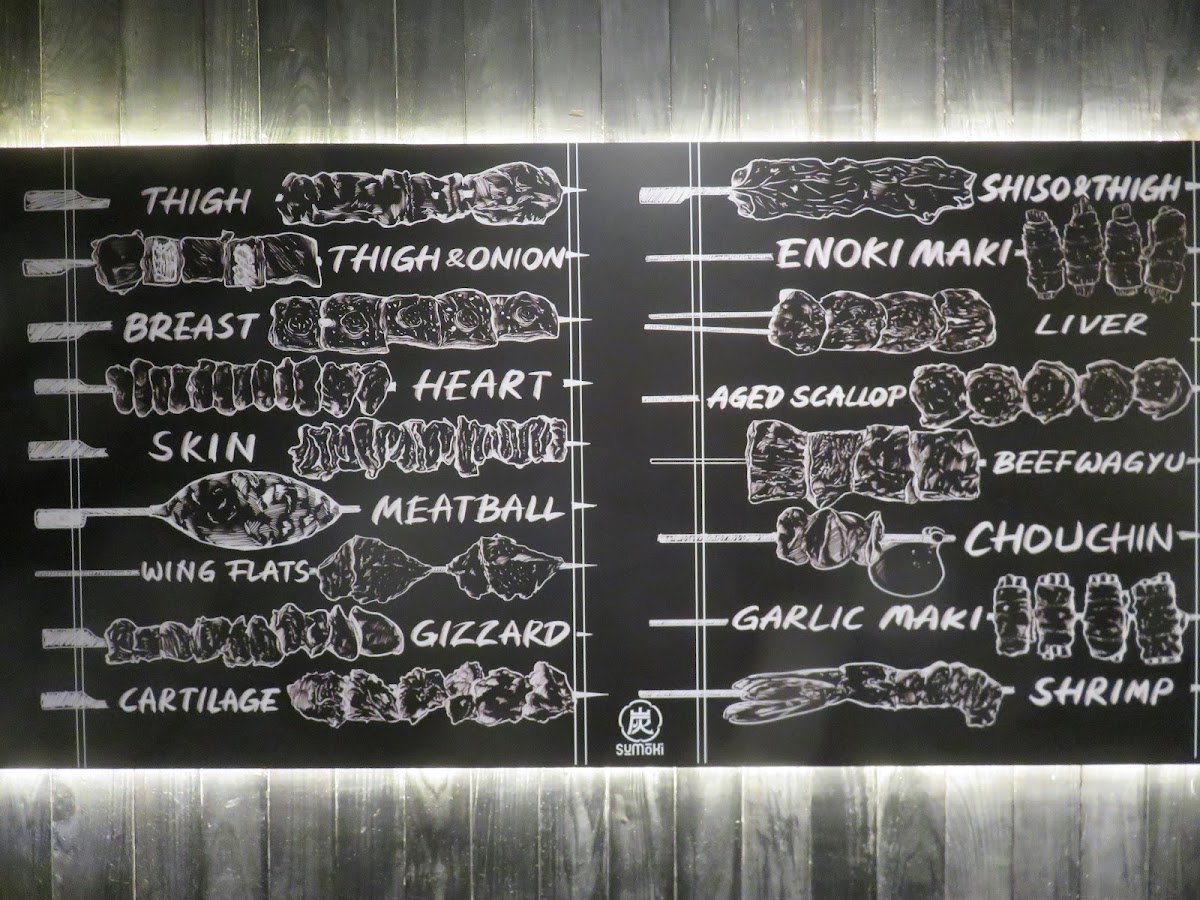 THIGH
THIGH & ONION
BREAST
HEART
SKIN
MEATBALL
WING FLATS
GIZZARD
CARTILAGE
SHISO & THIGH
ENOKI MAKI
LIVER
AGED SCALLOP
BEEF WAGYU
CHOUCHIN
GARLIC MAKI
SHRIMP
炭
SUMOKI